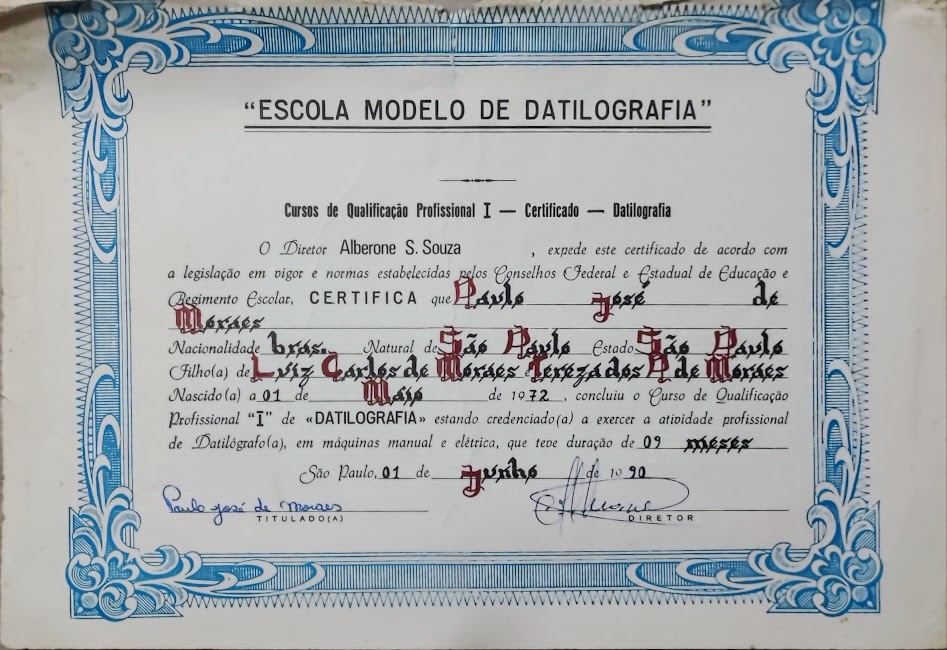 "ESCOLA MODELO DE DATILOGRAFIA"
Cursos de Qualificação Profissional I — Certificado — Datilografia
O Diretor Alberone S. Souza , expede este certificado de acordo com
a legislação em vigor e normas estabelecidas pelos Conselhos Federal e Estadual de Educação e
Regimento Escolar, CERTIFICA que Paulo José de
Moraes
Nacionalidade bras. Natural de São Paulo Estado São Paulo
Filho(a) de Luiz Carlos de Moraes Tereza dos P. de Moraes
Nascido(a) a 01 de Maio de 1972 , concluiu o Curso de Qualificação
Profissional "I" de «DATILOGRAFIA» estando credenciado(a) a exercer a atividade profissional
de Datilógrafo(a), em máquinas manual e elétrica, que teve duração de 09 meses
São Paulo, 01 de Junho de 1990
Paulo José de Moraes
TITULADO(A) DIRETOR